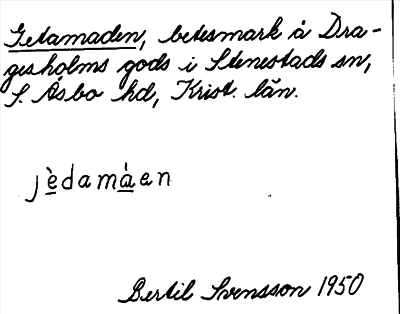 Getamaden, betesmark å Dra-
gesholms gods i Stenestads sn,
S. Åsbo hd, Krist. län.
jèdamàen
Bertil Svensson 1950